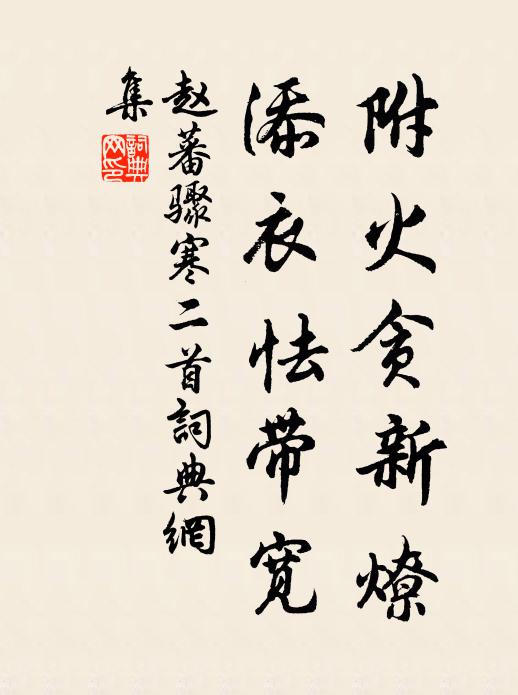 附火贪新燎
添衣怯带宽
赵蕃骤寒二首詞典網
集
詞典网印